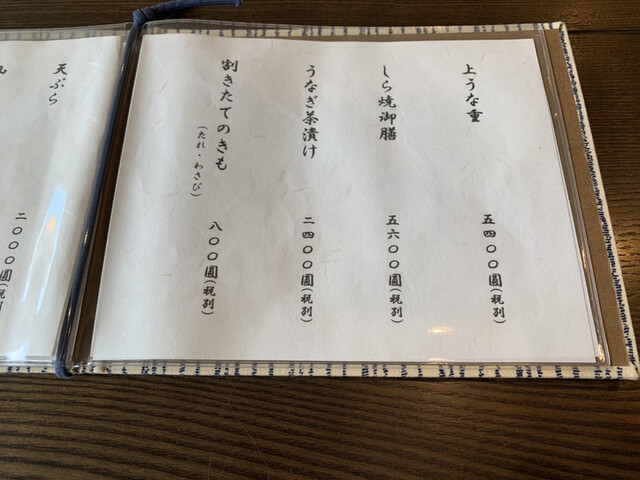 上うな重
五四〇〇圓（税別）
しら焼御膳
五六〇〇圓（税別）
うなぎ茶漬け
二四〇〇圓（税別）
割きたてのきも
（たれ・わさび）
八〇〇圓（税別）
天ぷら
二〇〇〇圓（税別